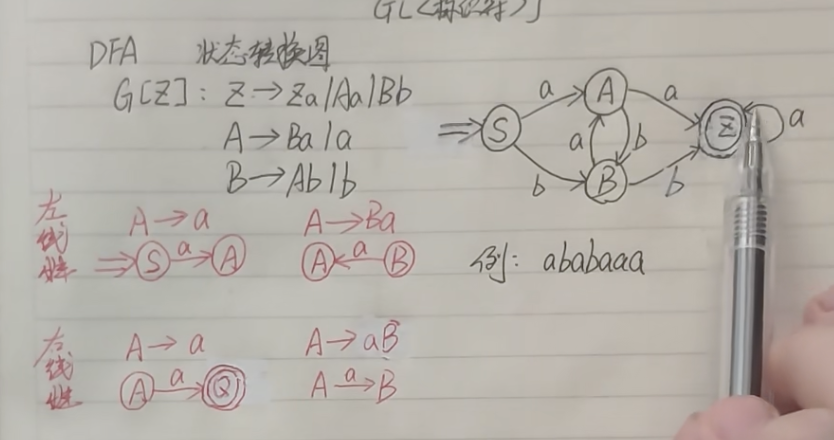 GL〈标识符〉]
DFA 状态转换图
G[Z]: Z→Za|Aa|Bb
A→Ba|a
B→Ab|b
⇒ S a A a Z a
a b
b B b
左线性
A→a A→Ba
⇒ S a A A a B
例: ababaaa
右线性
A→a A→aB
A a Q A a B